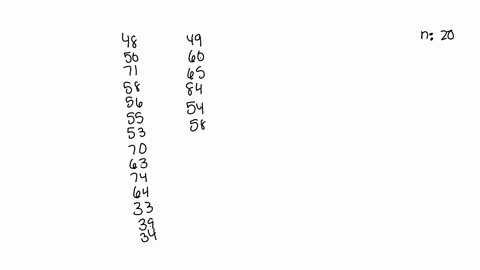 48 49 n: 20
50 60
71 65
58 84
56 54
55 58
53
70
63
74
64
33
39
34